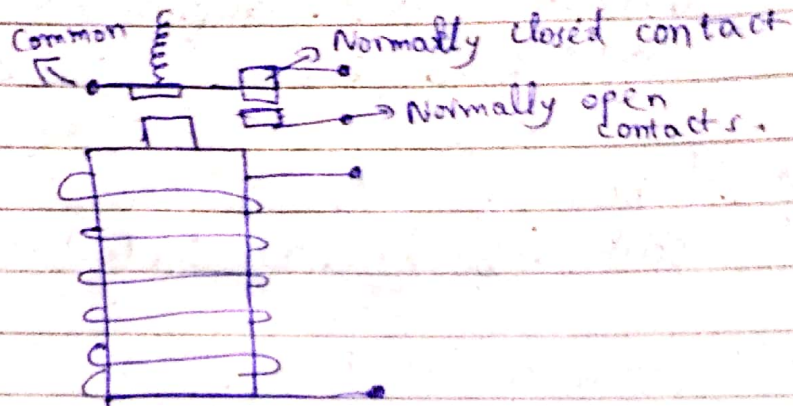 Common
Normally closed contact
Normally open
contacts.